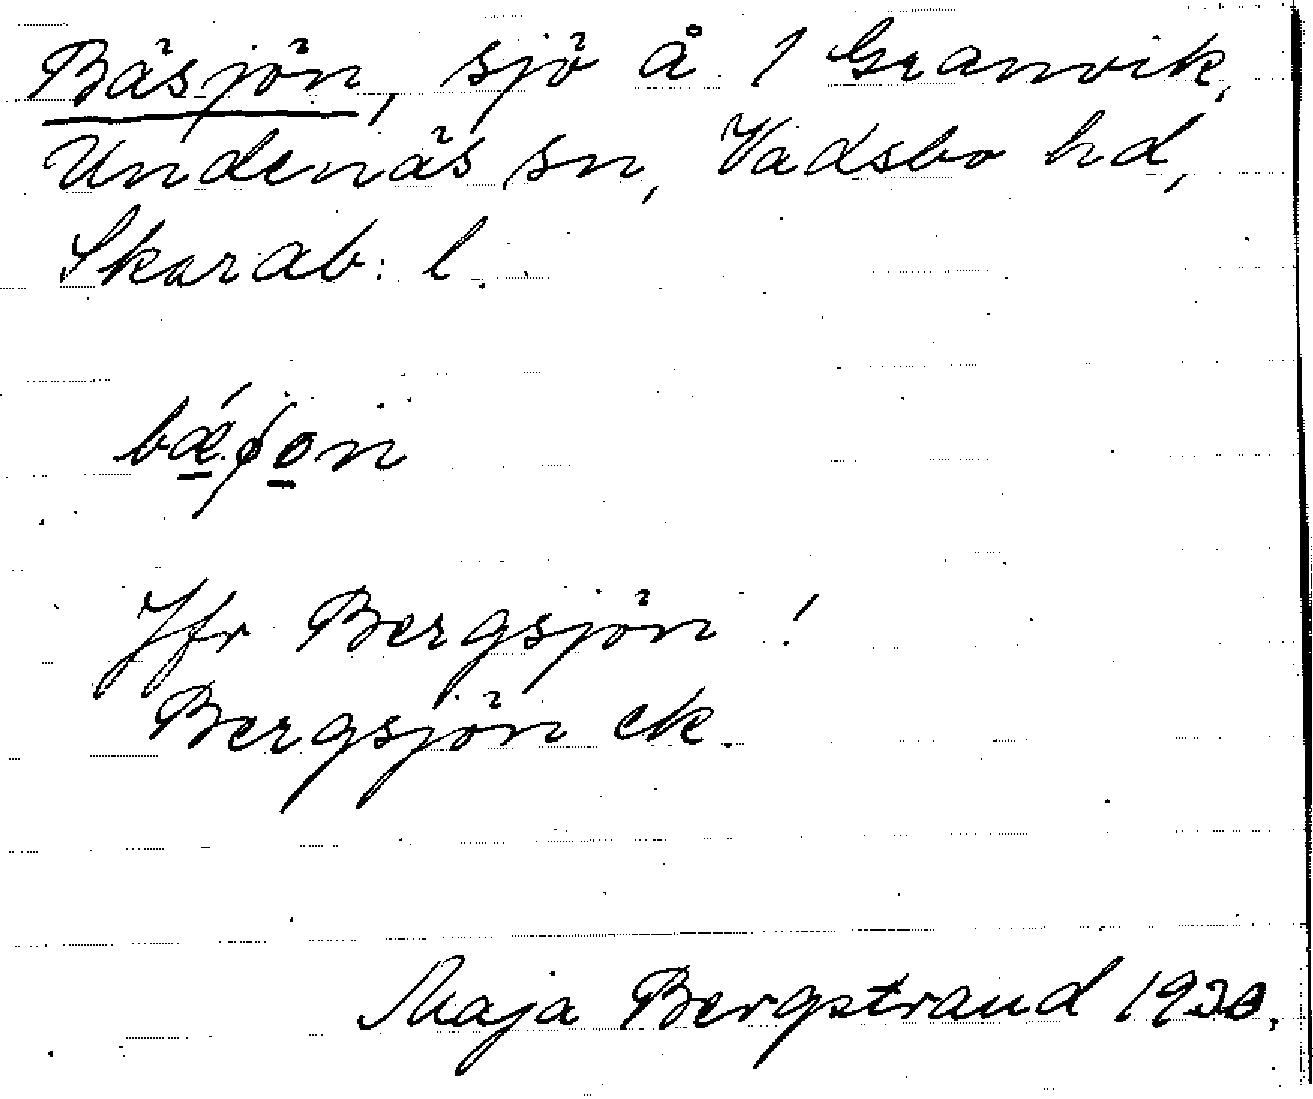 Bäsjön, sjö å 1 Granvik,
Undenäs sn, Vadsbo hd,
Skarab. l.
Jfr Bergsjön!
Bergsjön ek.
Maja Bergstrand 1930.